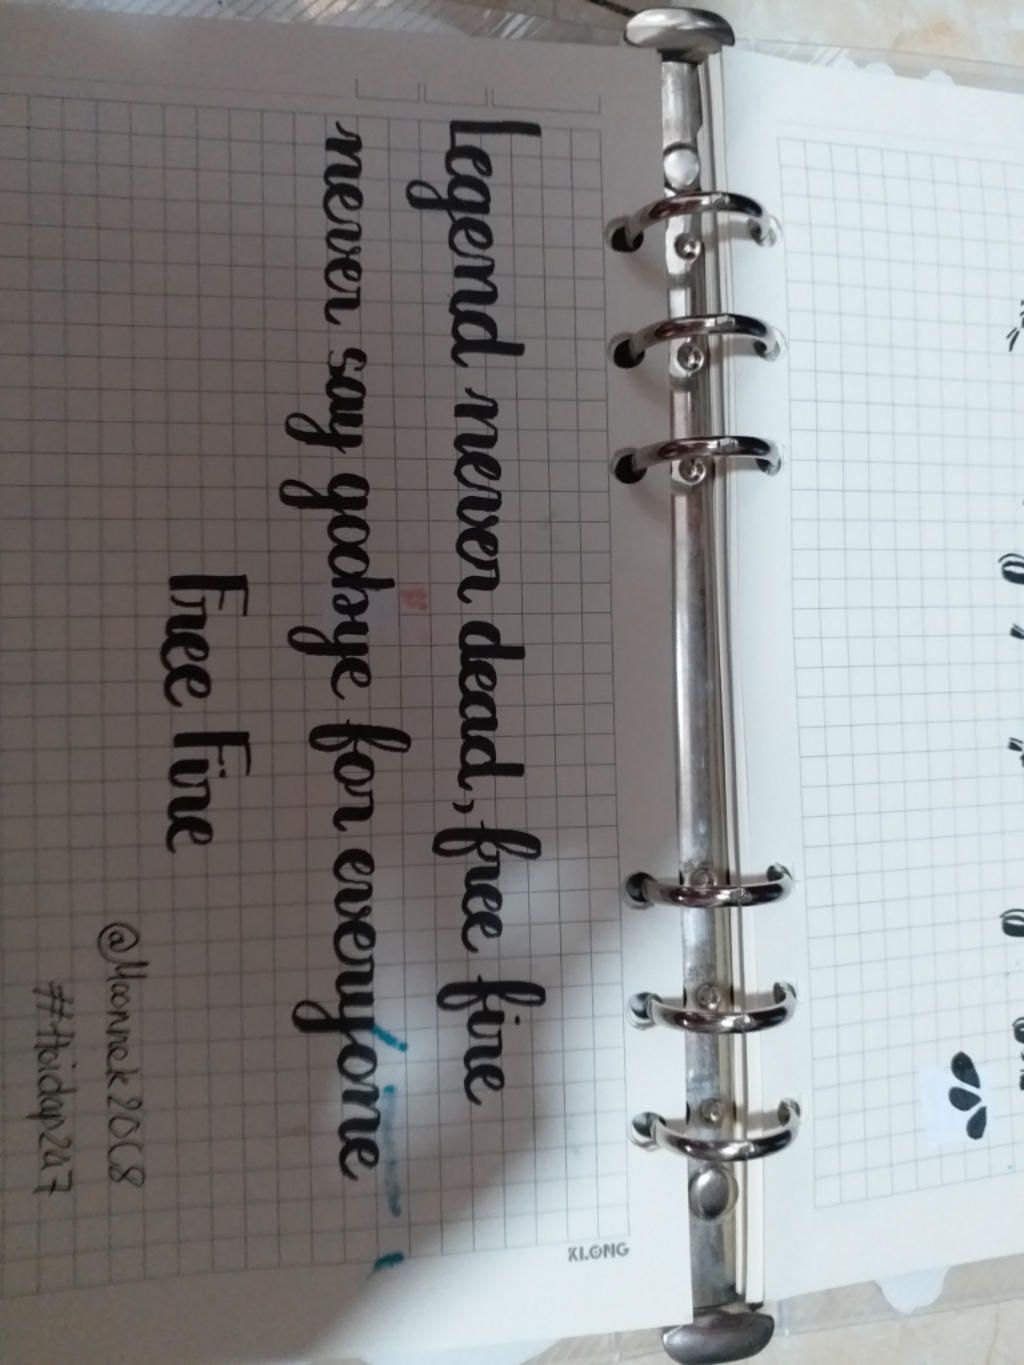 Legend never dead, free fire
never say godbye for everyone
Free Fire
@Moonnek2008
#Hoidap247
KLONG